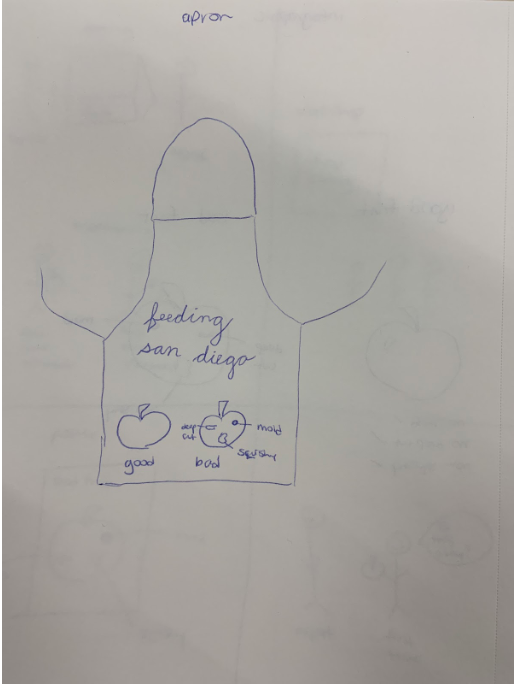 apron
feeding
san diego
deep
cut
mold
squishy
good
bad